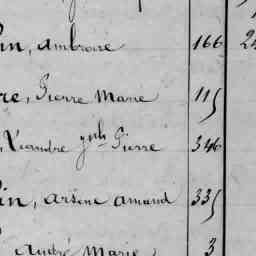 in, Ambroise 166 2
re, Pierre Marie 115
Léandre Jph Pierre 346
in, Arsène Amand 335
André Marie 3